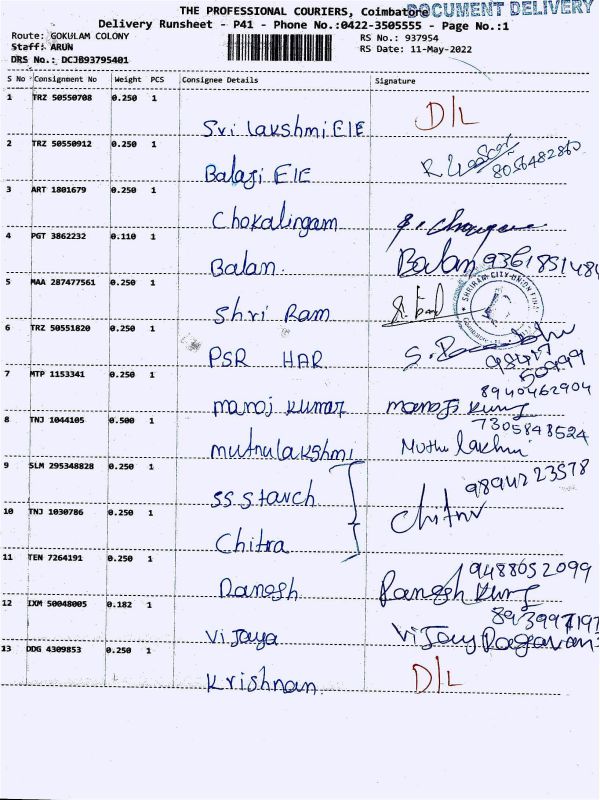 THE PROFESSIONAL COURIERS, Coimbatore
DOCUMENT DELIVERY
Delivery Runsheet - P41 - Phone No.:0422-3505555 - Page No.:1
Route: GOKULAM COLONY
RS No.: 937954
Staff: ARUN
RS Date: 11-May-2022
DRS No.: DCJB93795401
S No Consignment No Weight PCS Consignee Details Signature
1 TRZ 50550708 0.250 1
Sri Lakshmi EIE D/L
2 TRZ 50550912 0.250 1
Balaji EIE 8056482860
3 ART 1801679 0.250 1
Chokalingam
4 PGT 3862232 0.110 1
Balan. Balan 9361851484
5 MAA 287477561 0.250 1
Shri Ram
SHRIRAM CITY UNION
6 TRZ 50551820 0.250 1
PSR HAR 98417 50999
7 MTP 1153341 0.250 1
8940462904
Manoj Kumar Manoj Kumar
8 TNJ 1044105 0.500 1
7305848524
Muthulakshmi Muthu lakshmi
9 SLM 295348828 0.250 1
SS Starch 9894223578
10 TNJ 1030786 0.250 1
Chitra Chitra
11 TEN 7264191 0.250 1
9488052099
Ramesh Ramesh Kumar
12 IXM 50048005 0.182 1
8939971971
Vijaya Vijay Ragavan
13 DDG 4309853 0.250 1
Krishnan D/L